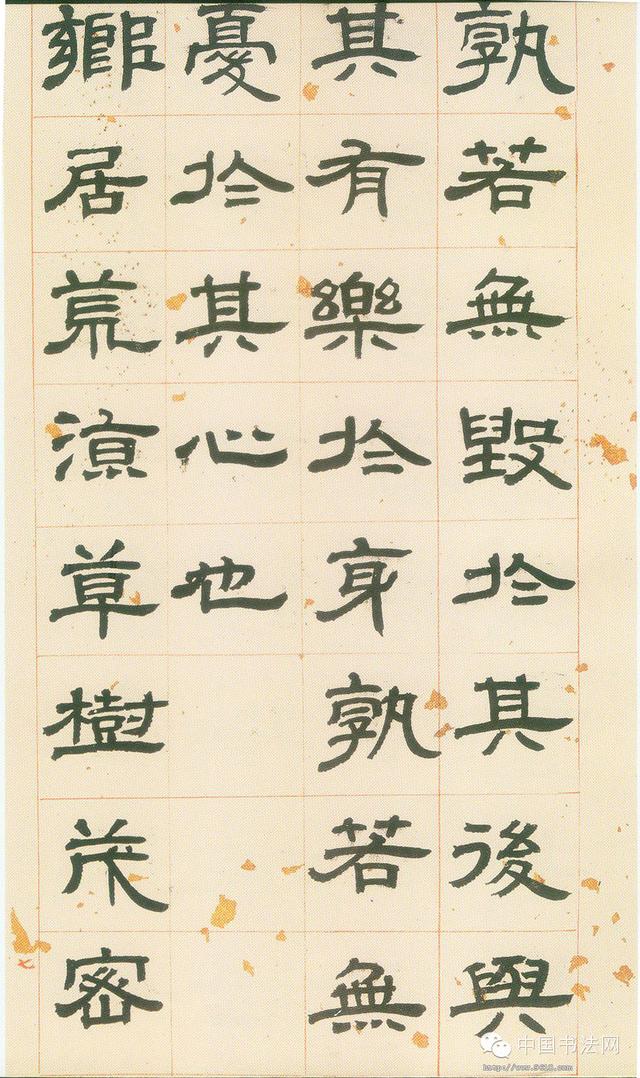 孰若無毀於其後與
其有樂於身孰若無
憂於其心也
鄉居荒涼草樹茂密
中国书法网
http://www.9610.com